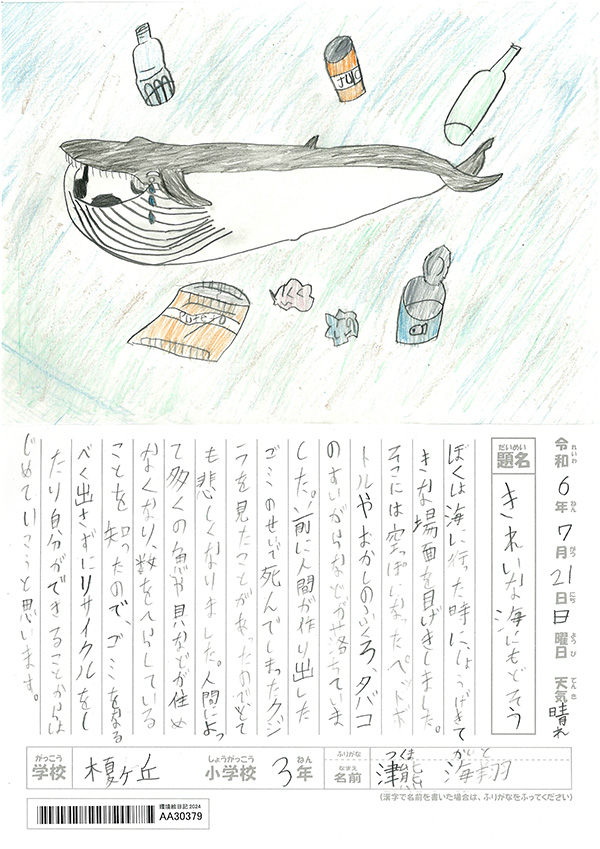 JUC
令和6年7月21日日曜日 天気晴れ
題名 きれいな海にもどそう
ぼくは海に行った時に、しょうげきて
きな場面を目げきしました。
そこには空っぽになったペットボ
トルやおかしのふくろ、タバコ
のすいがらなどが落ちていま
した。前に人間が作り出した
ゴミのせいで死んでしまったクジ
ラを見たことがあったので、とて
も悲しくなりました。人間によっ
て多くの魚や貝などが住め
なくなり、数をへらしている
ことを知ったので、ゴミをなる
べく出さずにリサイクルをし
たり自分ができることからは
じめていこうと思います。
学校 榎ヶ丘 小学校 3年 名前 津熊 海翔
つくま かいと
(漢字で名前を書いた場合は、ふりがなをふってください)
環境絵日記2024
AA30379